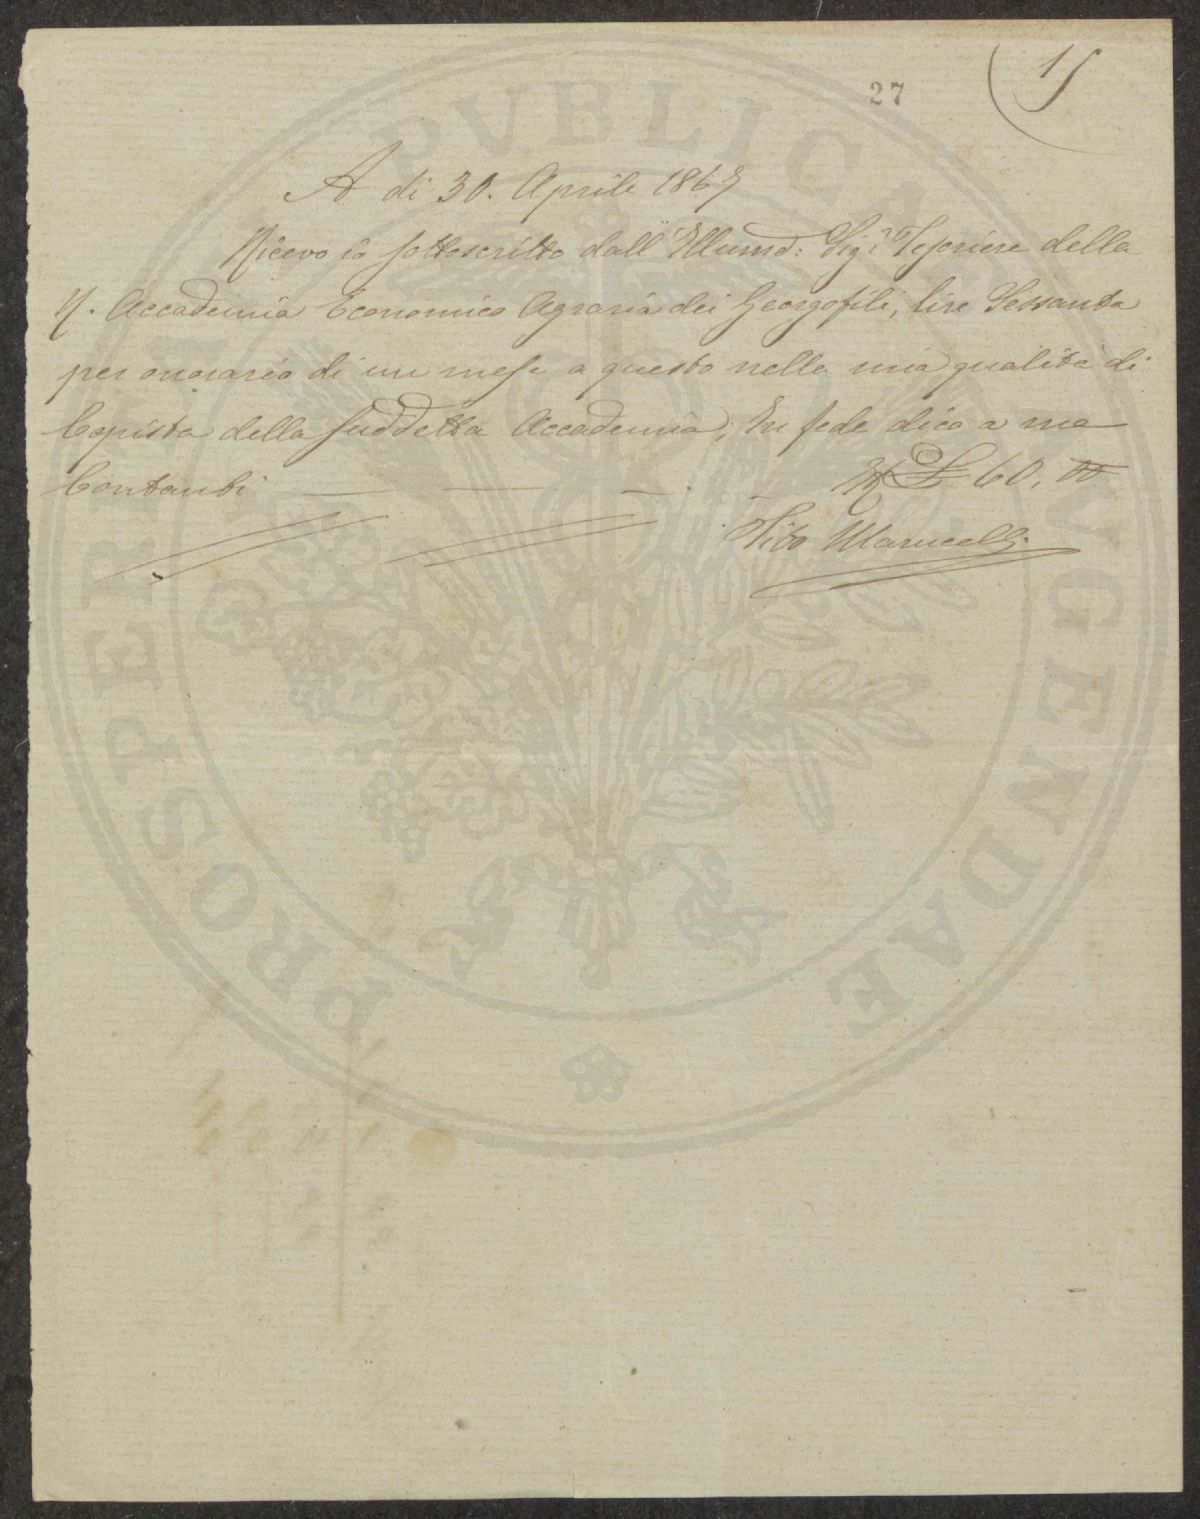 27
A di 30. Aprile 1867
Ricevo io sottoscritto dall' Illumo: Sigr Tesoriere della
R. Accademia Economico Agraria dei Georgofili, lire Sessanta
per onorario di un mese a questo nella mia qualità di
Copista della suddetta Accademia, In fede dico a me
Contanti £ 60, 00
Tito Marucelli
PROSPERITATI PVBLICAE AVGENDAE